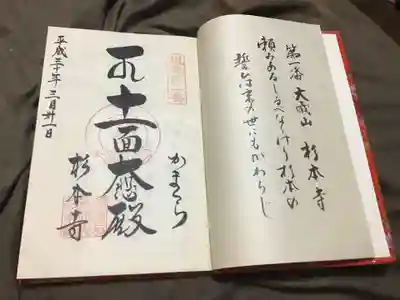 第一番 大蔵山 杉本寺
頼みあるしるべなりけり杉本の
誓ひは末の世にもかわらじ
坂東第一番
かまくら
十一面大悲殿
杉本寺
平成三十年三月廿一日